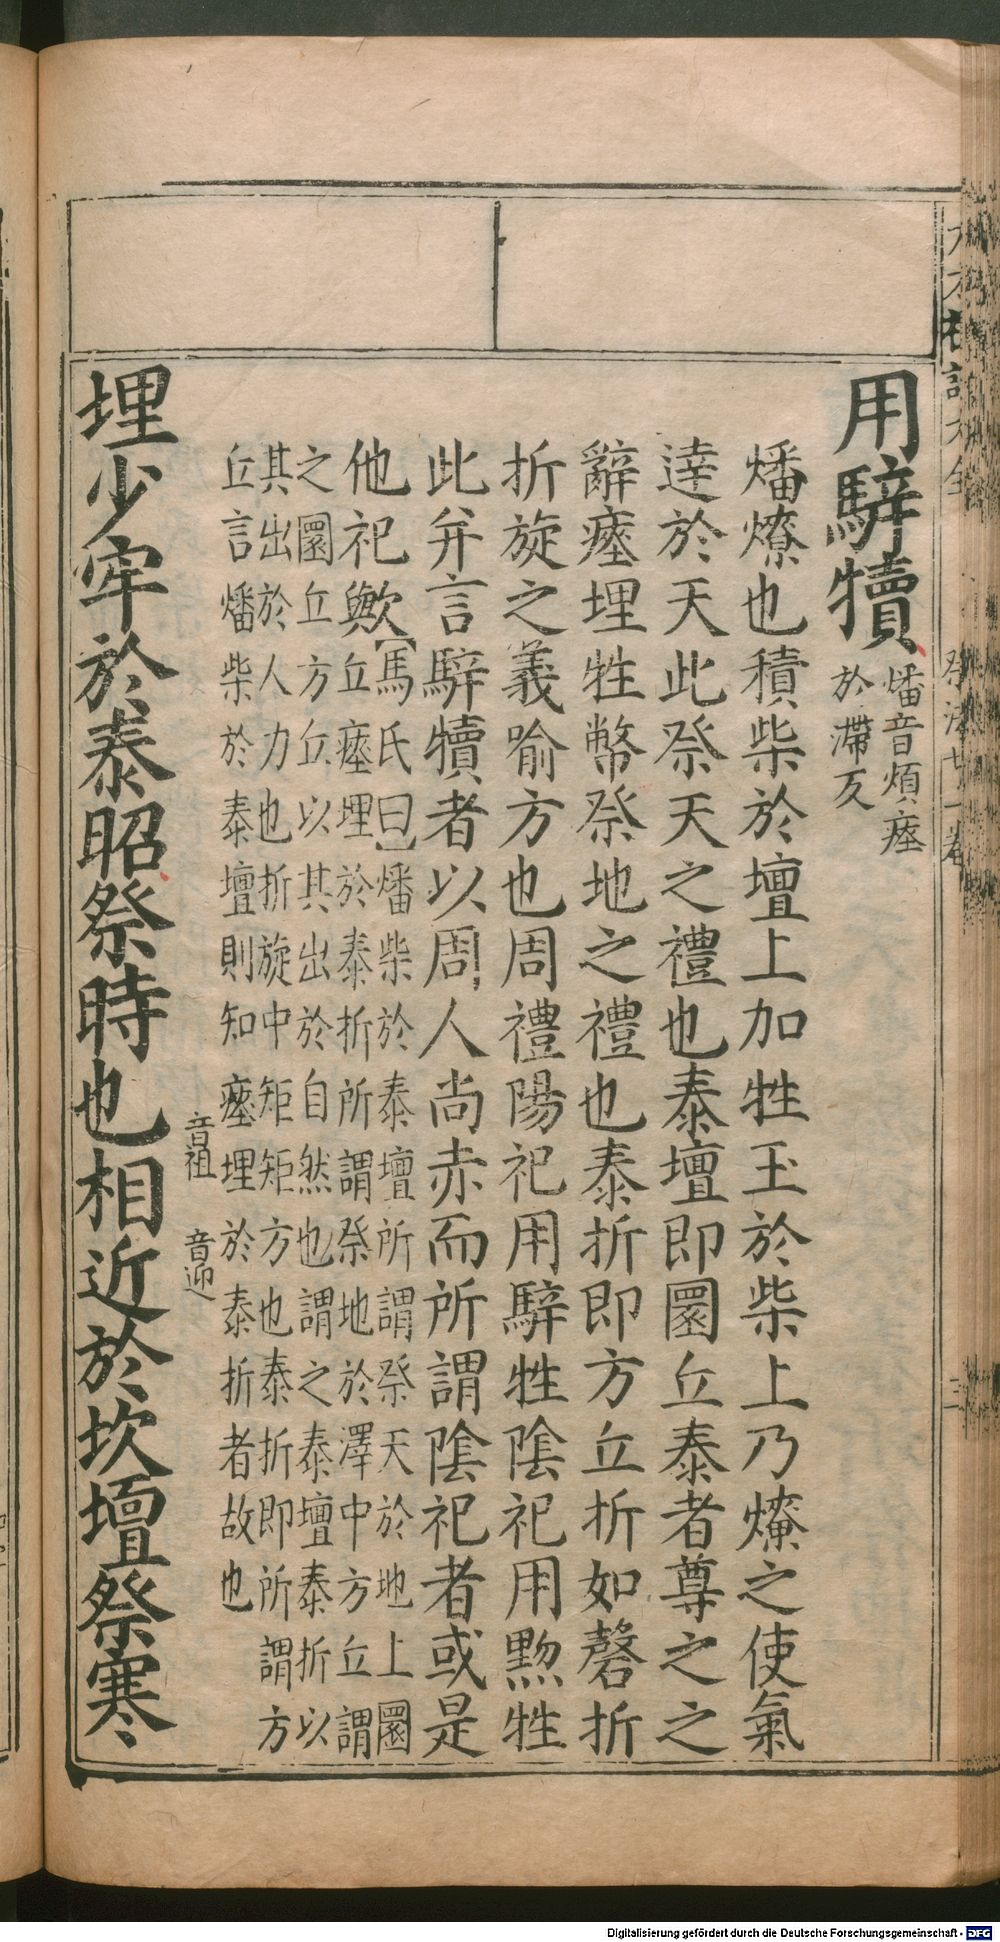 用騂犢
燔音煩瘞
於滯反
燔燎也積柴於壇上加牲玉於柴上乃燎之使氣
達於天此祭天之禮也泰壇即圜丘泰者尊之之
辭瘞埋牲幣祭地之禮也泰折即方丘折如磬折
折旋之義喻方也周禮陽祀用騂牲陰祀用黝牲
此并言騂犢者以周人尚赤而所謂陰祀者或是
他祀歟
【馬氏曰】燔柴於泰壇所謂祭天於地上圜
丘瘞埋於泰折所謂祭地於澤中方丘謂
之圜丘方丘以其出於自然也謂之泰壇泰折以
其出於人力也折旋中矩矩方也泰折即所謂方
丘言燔柴於泰壇則知瘞埋於泰折者故也
音祖 音迎
埋少牢於泰昭祭時也相近於坎壇祭寒
Digitalisierung gefördert durch die Deutsche Forschungsgemeinschaft - DFG